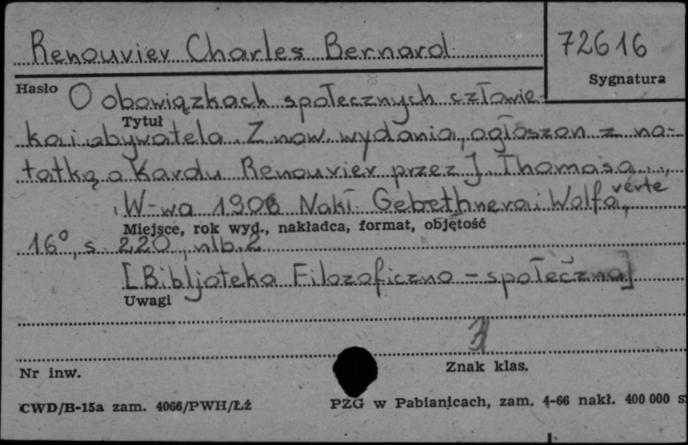 Renouvier Charles Bernard 72616
Sygnatura
Hasło O obowiązkach społecznych człowie-
Tytuł
ka i obywatela. Z now. wydania, ogłoszon z no-
tatką o Karolu Renouvier przez J. Thomasa.,
W-wa 1908 Nakł. Gebethnera i Wolfa, verte
Miejsce, rok wyd., nakładca, format, objętość
16°, s. 220, nlb. 2
[Bibljoteka Filozoficzno-społeczna]
Uwagi
Nr inw. Znak klas.
CWD/B-15a zam. 4066/PWH/Łź PZG w Pabianicach, zam. 4-66 nakł. 400 000 s